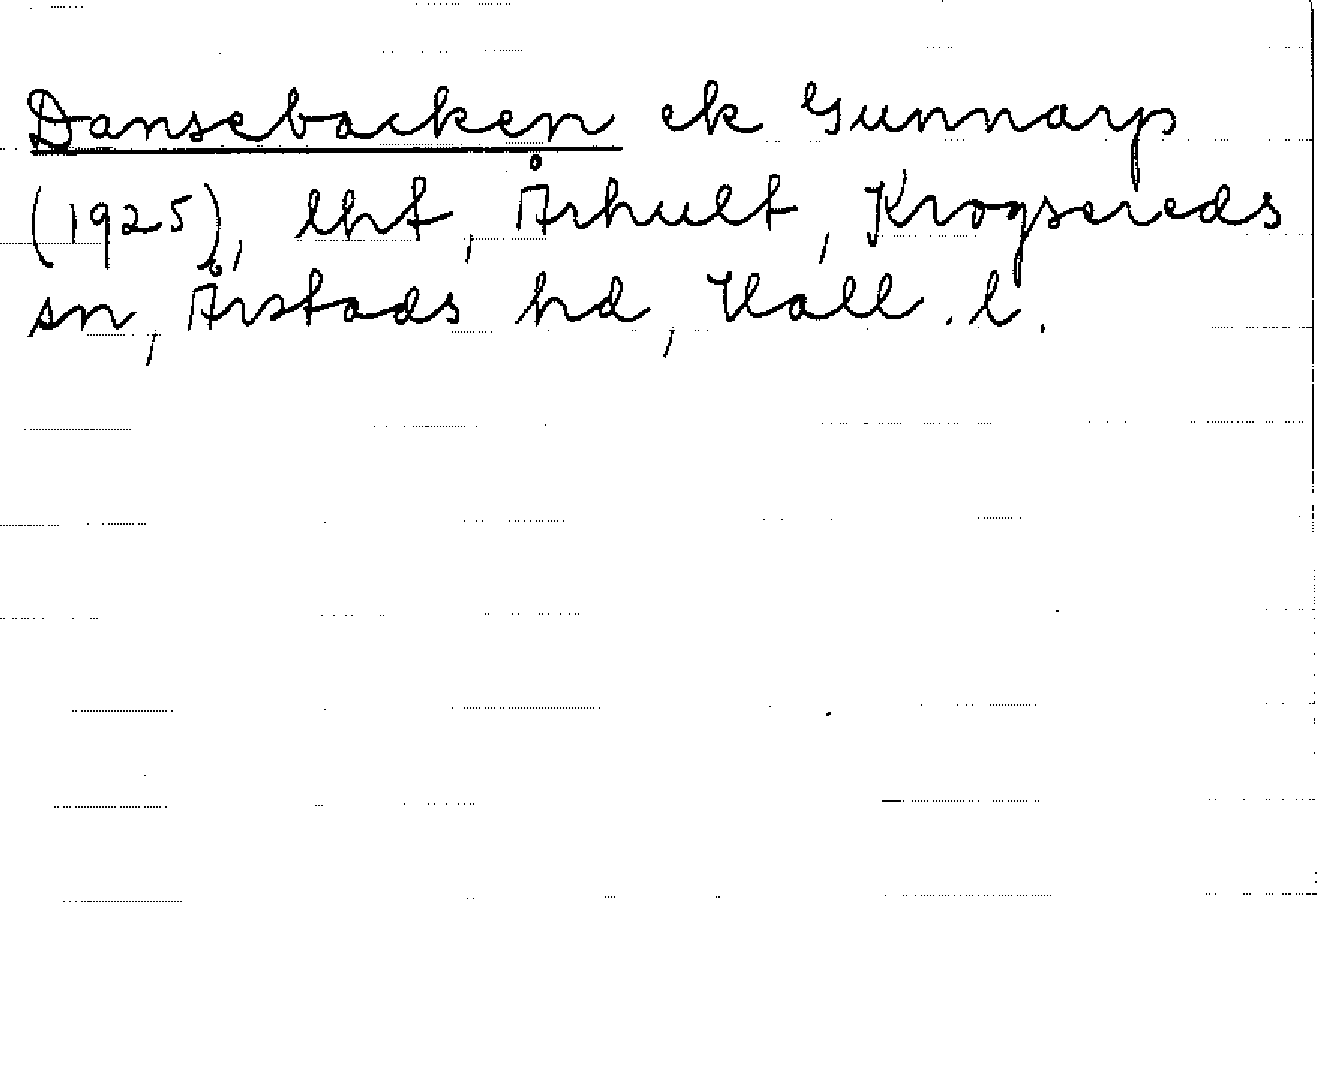 Dansebacken ek Gunnarp
(1925), lht, Århult, Krogsereds
sn, Årstads hd, Hall. l.